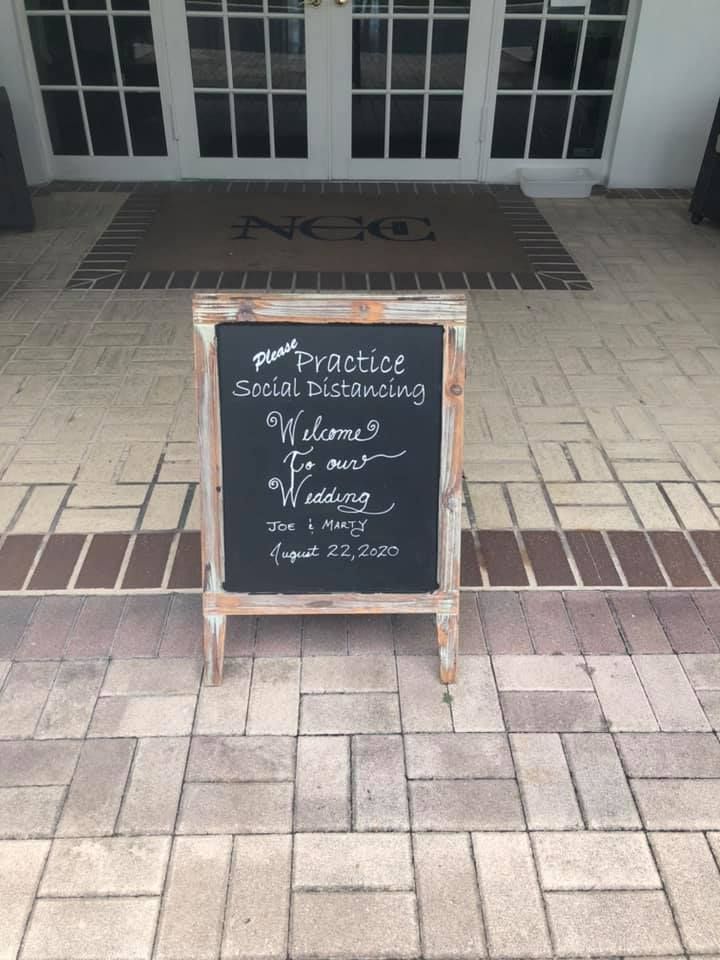 NCC
Please Practice
Social Distancing
Welcome
To our
Wedding
JOE & MARTY
August 22, 2020